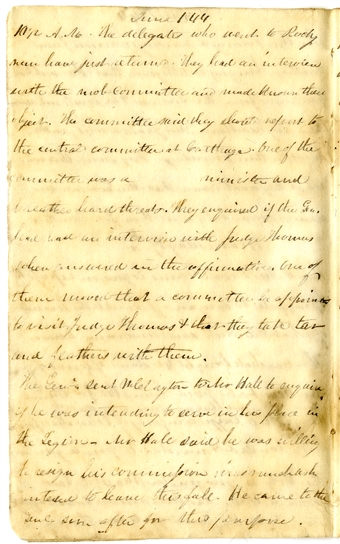 June 1844
10½ A.M. The delegates who went to Rocky
run have just returned. They had an interview
with the mob committee and made known their
object. The committee said they should report to
the central committee at Carthage. One of the
committee was a minister and
breathed hard threats. They enquired if the Gen.
had had an interview with Judge Thomas
when answered in the affirmative. One of
them moved that a committee be appointed
to visit Judge Thomas & that they take tar
and feathers with them.
The Gen. send W. Clayton to Mr Hale to enquire
if he was intending to serve in his place in
the Legion - Mr Hale said he was willing
to resign his commission inasmuch as he
intend to leave this fall. He came to the
soon after for this purpose.